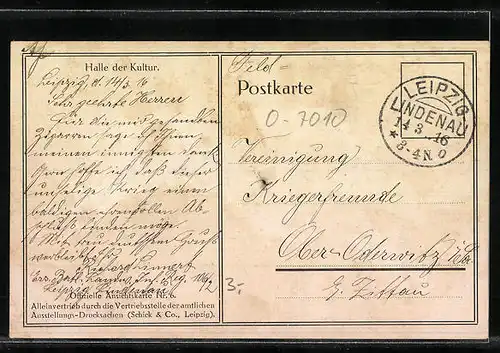 Halle der Kultur.
Leipzig, d. 14/3. 16
Sehr geehrte Herren
Für die mir gesandten
Zigarren sage ich Ihnen
meinen innigsten Dank
Gern hoffe ich, daß dieser
unselige Krieg einen
baldigen ehrenvollen Ab-
schluß finden möge.
Mit treu deutschem Gruß
verbleibt
Leipzig Lindenau
Offizielle Ansichtskarte Nr. 6.
Alleinvertrieb durch die Vertriebsstelle der amtlichen
Ausstellungs-Drucksachen (Schick & Co., Leipzig).
Feld-
Postkarte
0-7010
LEIPZIG
LINDENAU
14 3 16
* 3-4 N. o
Vereinigung
Kriegerfreunde
Ober-Oderwitz i/Sa.
b. Zittau
3.-